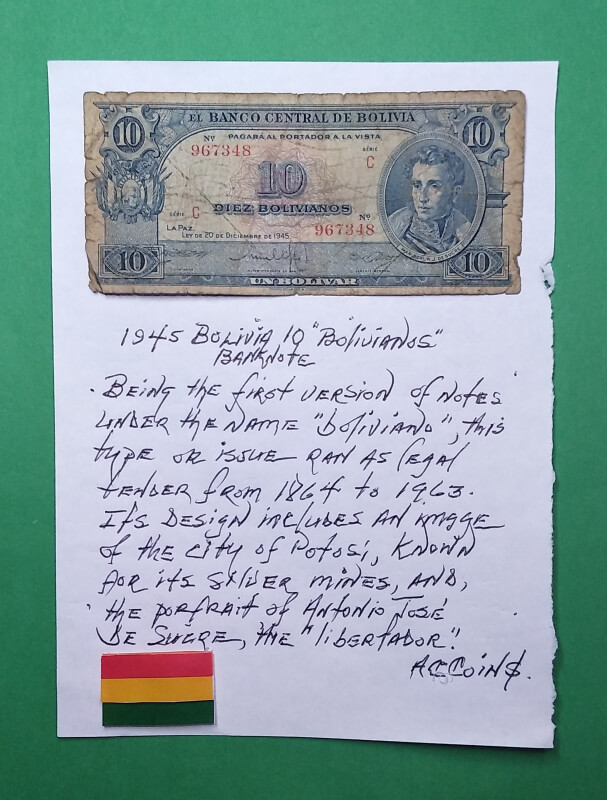 EL BANCO CENTRAL DE BOLIVIA
10
10
Nº
PAGARÁ AL PORTADOR A LA VISTA
967348
SERIE
C
10
SERIE
C
DIEZ BOLIVIANOS
Nº
967348
LA PAZ,
LEY DE 20 DE DICIEMBRE DE 1945
10
10
UN BOLIVAR
1945 BOLIVIA 10 "BOLIVIANOS"
BANKNOTE
. BEING THE FIRST VERSION OF NOTES
UNDER THE NAME "BOLIVIANO", THIS
TYPE OR ISSUE RAN AS LEGAL
TENDER FROM 1864 TO 1963.
ITS DESIGN INCLUDES AN IMAGE
OF THE CITY OF POTOSÍ, KNOWN
FOR ITS SILVER MINES, AND,
THE PORTRAIT OF ANTONIO JOSÉ
DE SUCRE, THE "LIBERTADOR".
ACCOIN$.